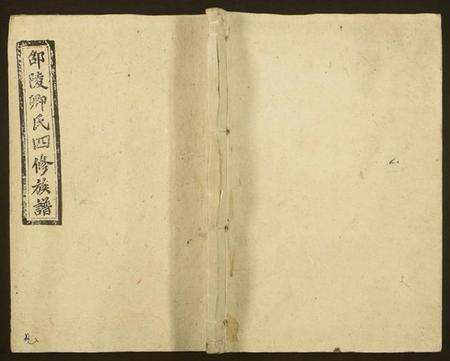 邵陵卿氏四修族譜